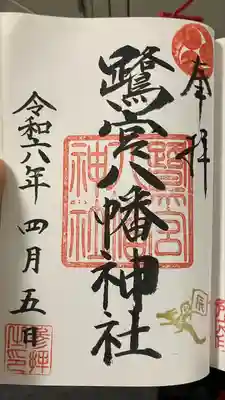 奉拝
鷺宮八幡神社
令和六年 四月五日
鷺宮八幡神社
辰
参拝之印